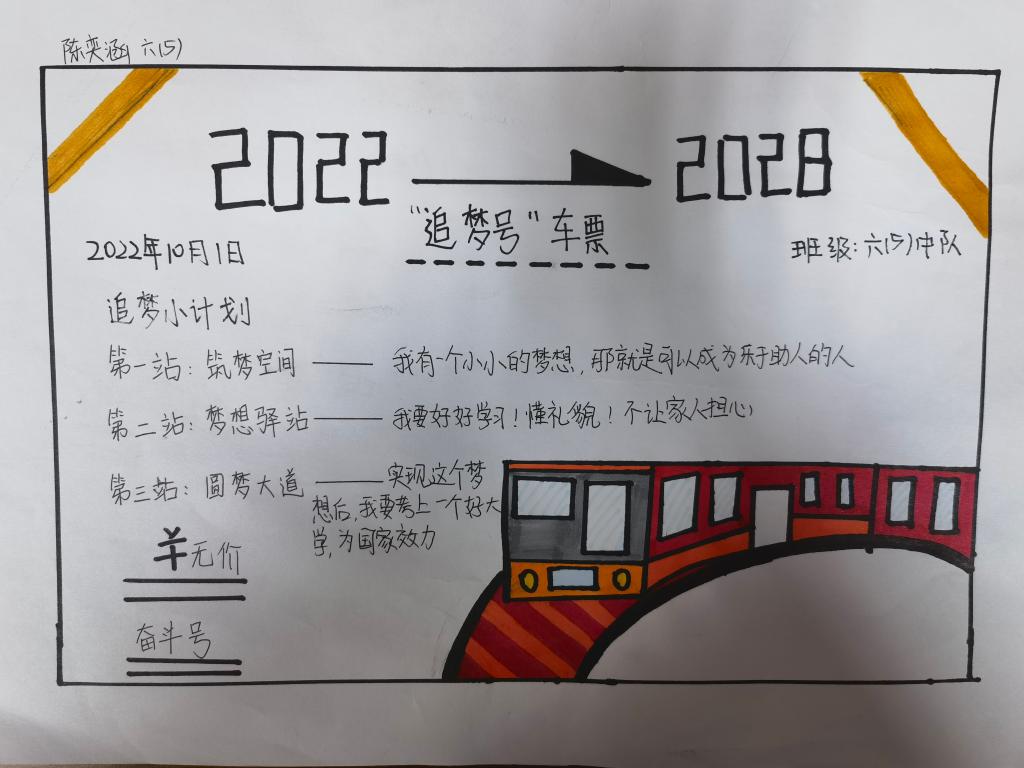 陈奕涵 六(5)
2022 2028
“追梦号”车票
2022年10月1日 班级:六(5)中队
追梦小计划
第一站:筑梦空间——我有一个小小的梦想,那就是可以成为乐于助人的人
第二站:梦想驿站——我要好好学习!懂礼貌!不让家人担心
第三站:圆梦大道——实现这个梦
想后,我要考上一个好大
学,为国家效力
¥无价
奋斗号